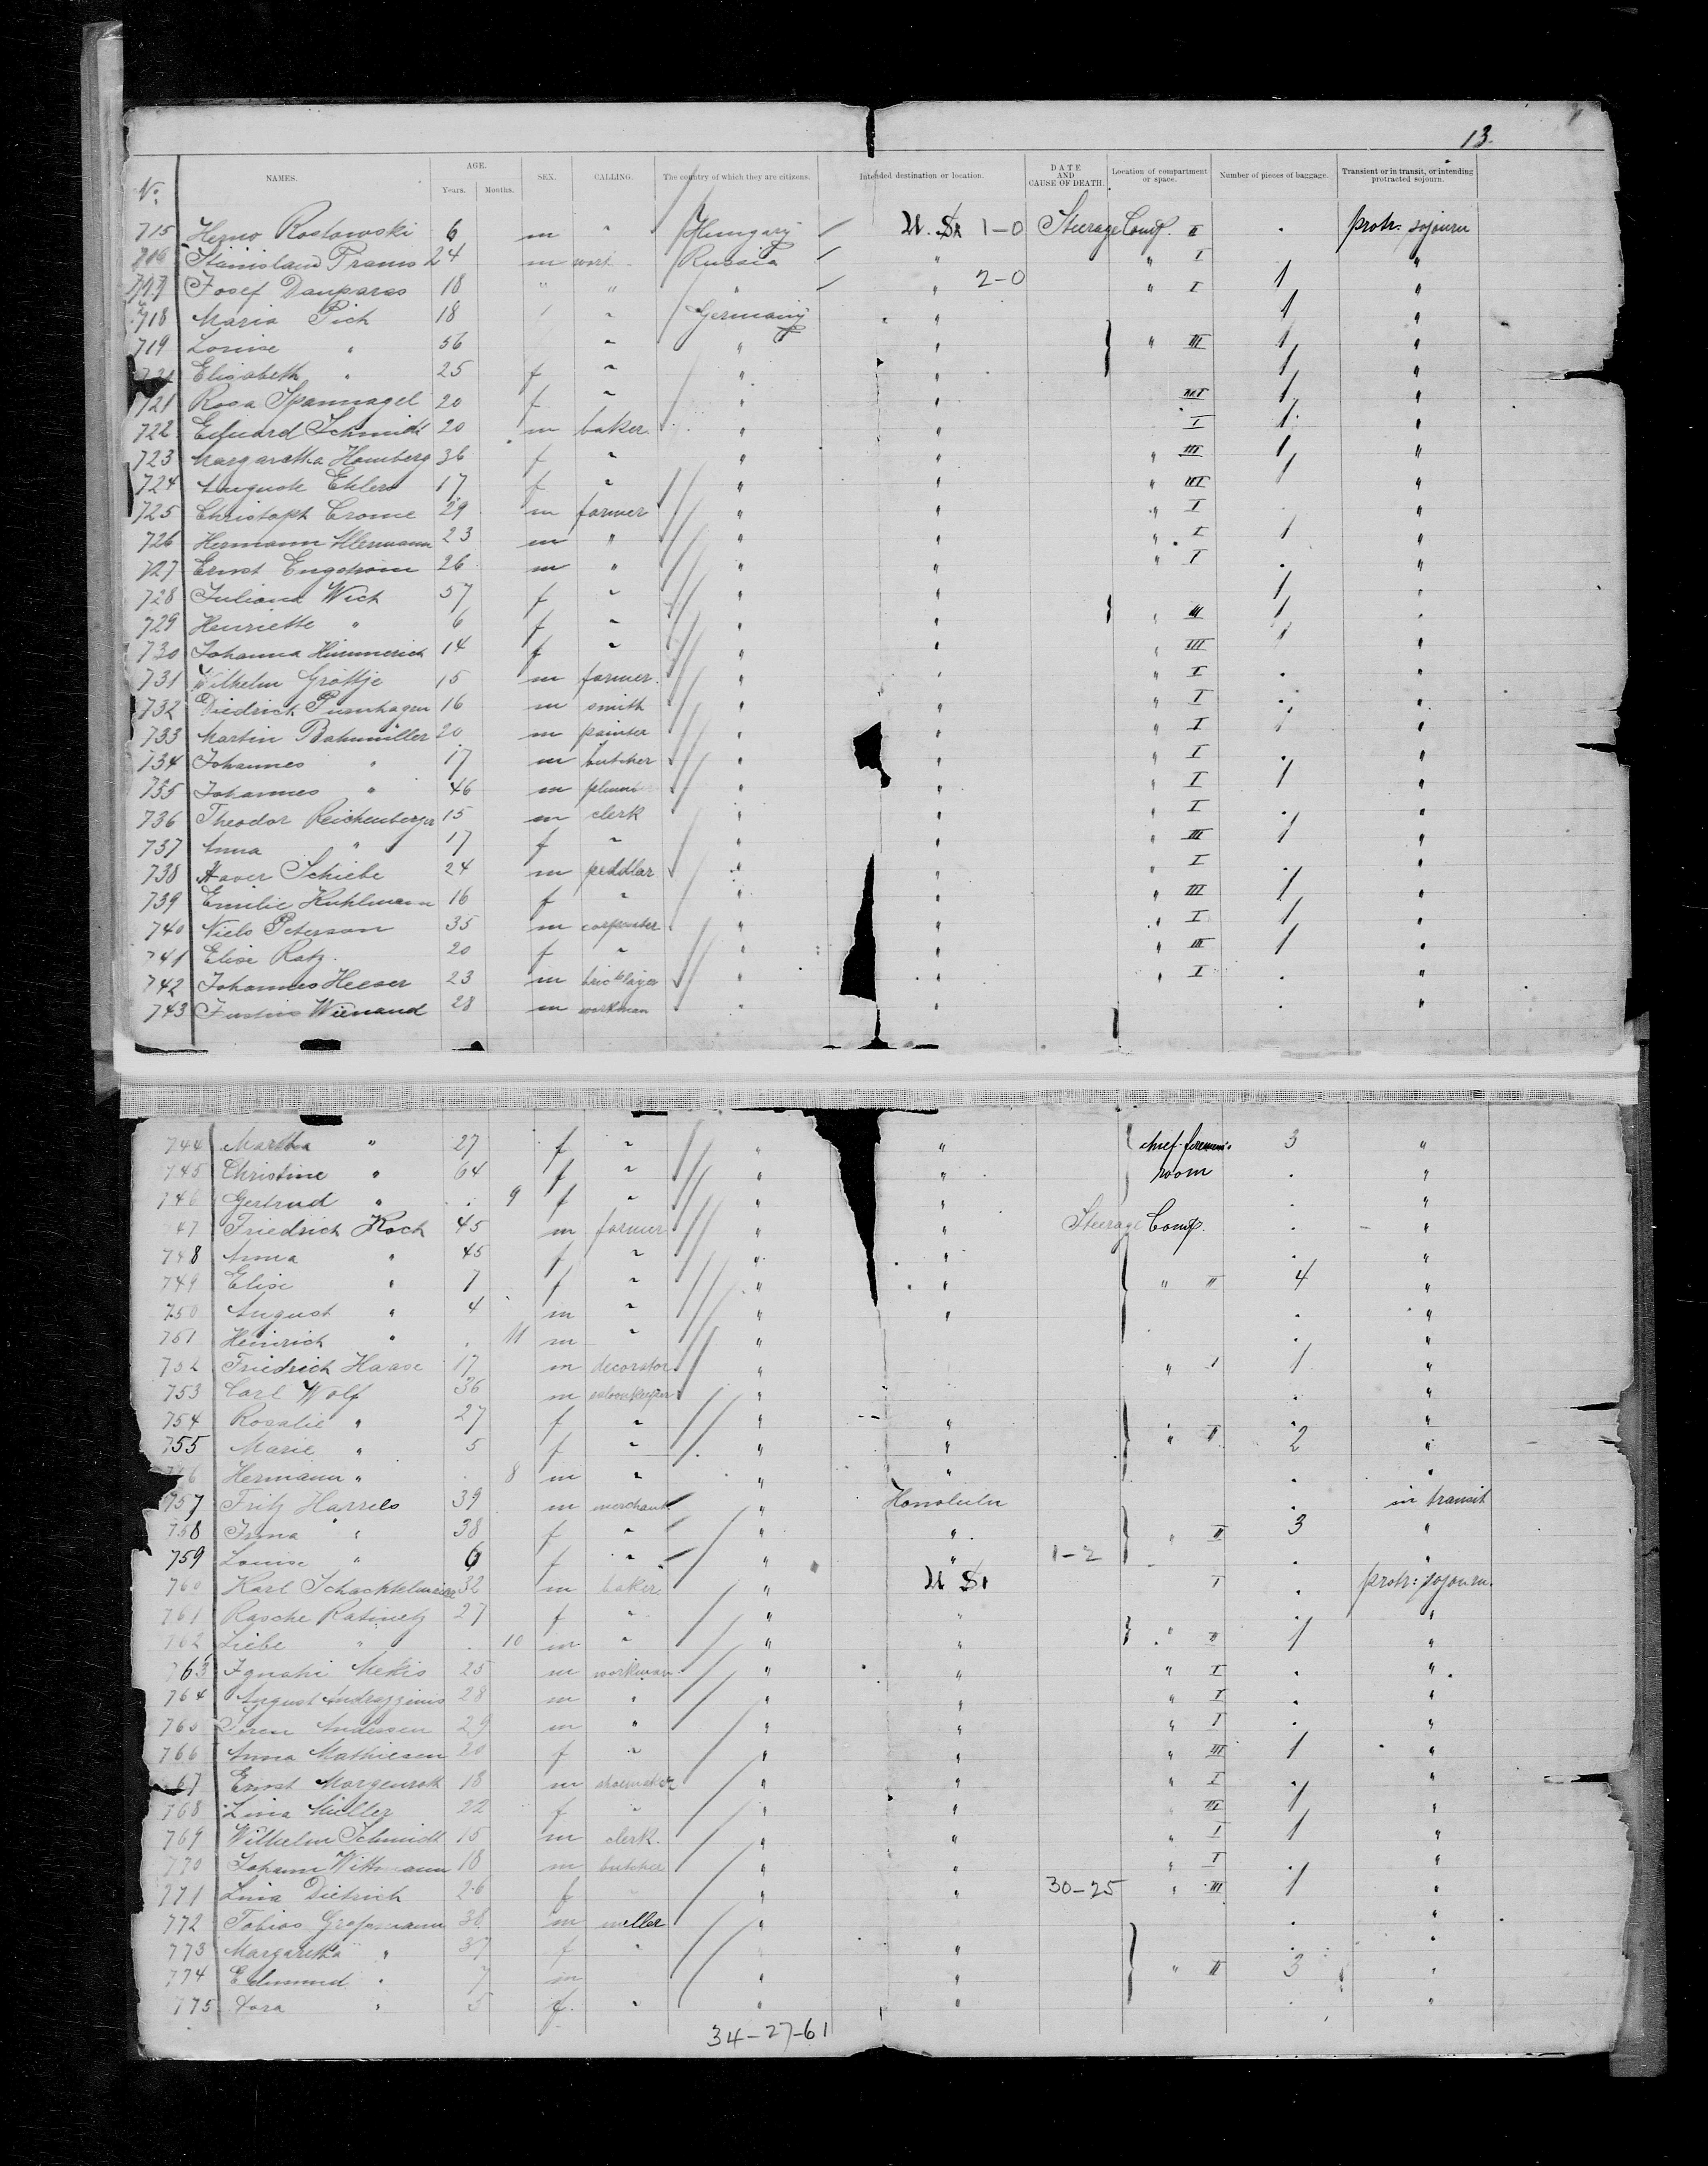 13.
No. NAMES. AGE. Years. Months. SEX. CALLING. The country of which they are citizens. Intended destination or location. DATE AND CAUSE OF DEATH. Location of compartment or space. Number of pieces of baggage. Transient or in transit, or intending protracted sojourn.
715 Rostowski 6 m " Hungary U. S. 1-0 Steerage Comp. II . protr. sojourn
716 Stanislaus 24 m work Russia " " I . "
717 Josef 18 " " " " 2-0 " I 1 "
718 Maria Pich 18 " Germany " 1 "
719 Louise " 56 " " " " III 1 "
Elisabeth " 25 f " " " 1 "
721 Rosa Spannagel 20 f " " " III 1 "
722 Eduard Schmidt 20 m baker " " I 1 "
723 Margaretha Homberg 36 f " " " " III 1 "
724 Auguste Ehlers 17 f " " " " III 1 "
725 Christoph Crome 29 m farmer " " " I . "
726 Hermann 23 m " " " " I 1 "
727 Ernst Engstrom 26 m " " " " I . "
728 Juliana Wick 57 f " " " 1 "
729 Henriette " 6 f " " " " III 1 "
730 Johanna Himmerich 14 f " " " " III 1 "
731 Wilhelm Grottje 15 m farmer " " " I . "
732 Diedrich 16 m smith " " " I . "
733 Martin Bahnmiller 20 m painter " " " I "
734 Johannes " 17 m butcher " " " I . "
735 Johannes " 46 m " " " I 1 "
736 Theodor Reichenberger 15 m clerk " " " I . "
737 Anna " 17 f " " " " III 1 "
738 Xaver Schiebe 24 m peddlar " " I . "
739 Emilie Kuhlmann 16 f " " " " III 1 "
740 Niels Peterson 35 m carpenter " " " I 1 "
741 Elise Ratz 20 f " " " " III 1 "
742 Johannes Heeser 23 m bricklayer " " " I . "
743 Justus Wienand 28 m workman " " . "
744 Martha " 27 f " " " chief foreman's 3 "
745 Christine " 64 f " " " room . "
746 Gertrud " . 9 f " " " . "
47 Friedrich Koch 45 m farmer " " Steerage Comp. . "
748 Anna " 45 f " " " . "
749 Elise " 7 f " " " " II 4 "
750 August " 4 m " " " . "
751 Heinrich " . 11 m " " . "
752 Friedrich Haase 17 m decorator " " I 1 "
753 Carl Wolf 36 m saloonkeeper " . "
754 Rosalie " 27 f " " " . "
755 Marie " 5 f " " " " II 2 "
Hermann " . 8 m " " " . "
757 Fritz Harrels 39 m merchant " Honolulu . in transit
758 Irma " 38 f " " " " II 3 "
759 Louise " 6 f " " " 1-2 . "
760 Karl 32 m baker " U S. I . protr: sojourn.
761 Rasche Ratinetz 27 f " " " . "
762 Liebe " . 10 m " " " " II 1 "
763 Ignatzi Mekis 25 m workman " " " I . "
764 August 28 m " " " " I . "
765 Soren Andersen 29 m " " " " I . "
766 Anna Mathiesen 20 f " " " " III 1 "
67 Ernst Morgenroth 18 m shoemaker " " " I . "
768 Lina Müller 22 f " " " " III 1 "
769 Wilhelm Schmidt 15 m clerk " " " I 1 "
770 Johann Wittmann 18 m butcher " " " I . "
771 Lina Dietrich 26 f " " 30-25 " III 1 "
772 Tobias Grossmann 38 m miller " . "
773 Margaretha " 37 f " " . "
774 Edmund " 7 m " " " II 3 "
775 Dora " 5 f. " " " . "
34-27-61